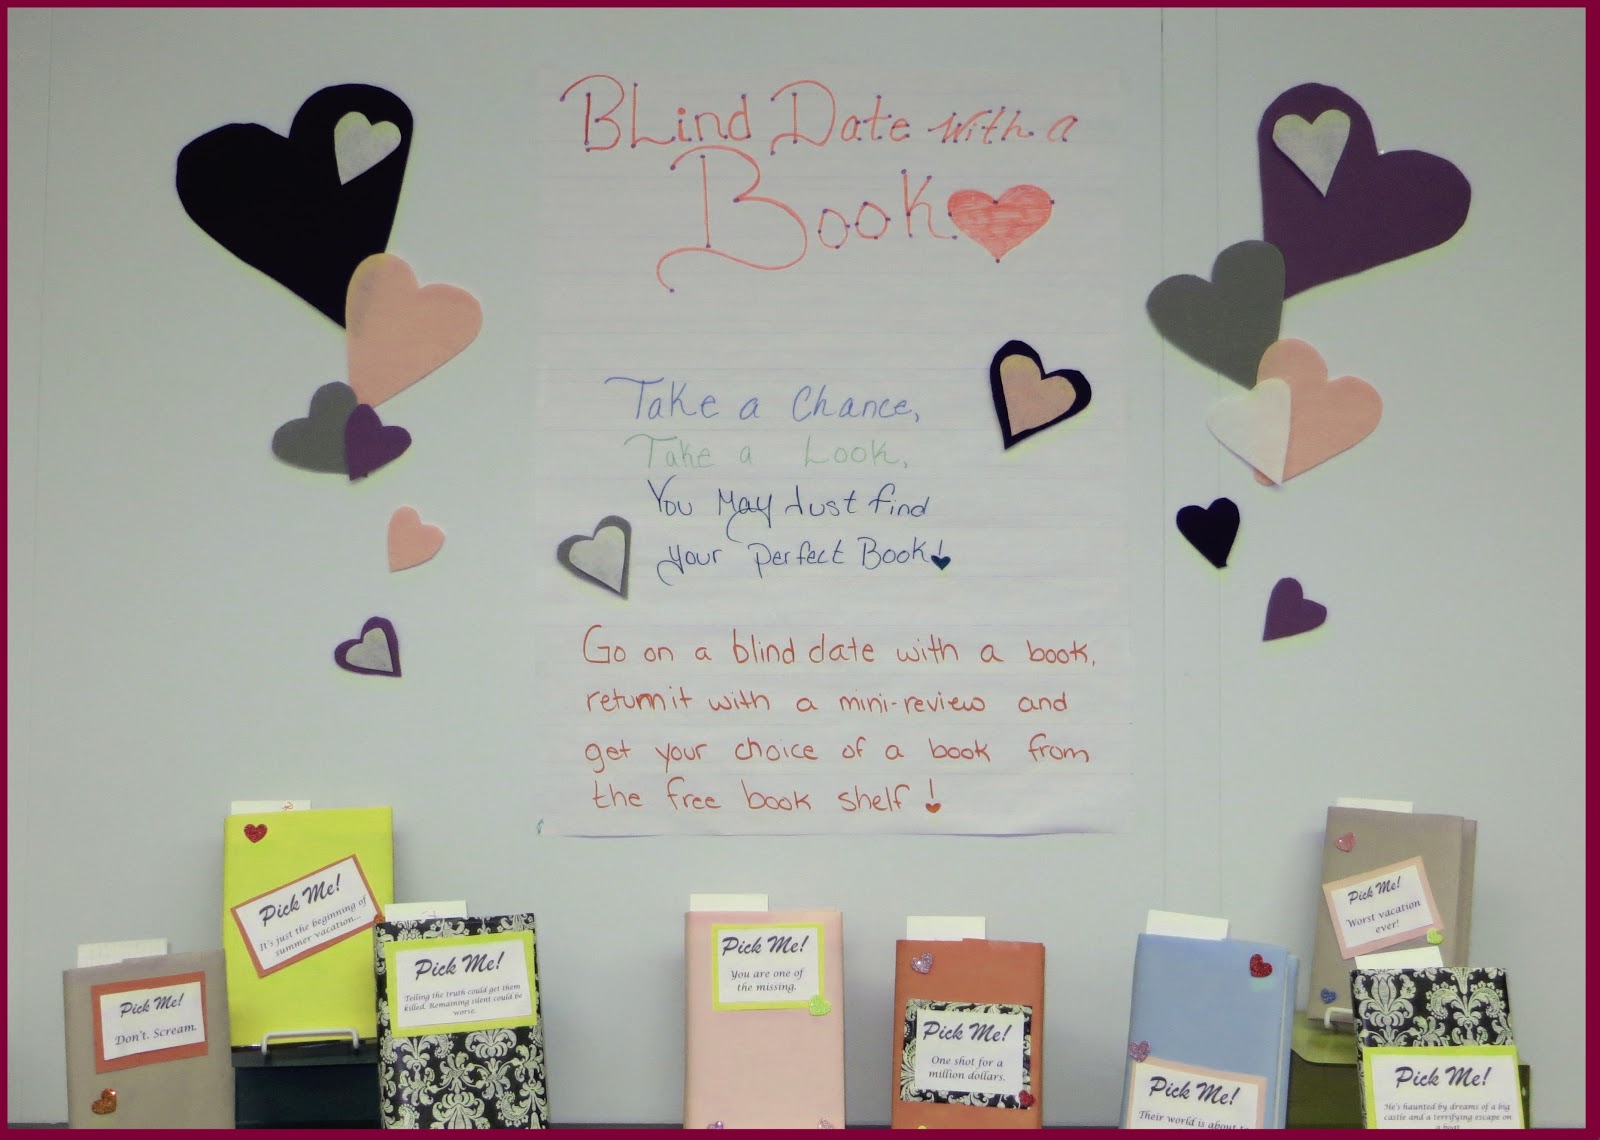 BLind Date with a
Book
Take a Chance,
Take a Look,
You May Just find
your perfect Book!
Go on a blind date with a book,
return it with a mini-review and
get your choice of a book from
the free book shelf!
Pick Me!
Don't. Scream.
Pick Me!
It's just the beginning of
summer vacation...
Pick Me!
Telling the truth could get them
killed. Remaining silent could be
worse.
Pick Me!
You are one of
the missing.
Pick Me!
One shot for a
million dollars.
Pick Me!
Their world is about to
Pick Me!
Worst vacation
ever!
Pick Me!
He's haunted by dreams of a big
castle and a terrifying escape on
a boat.